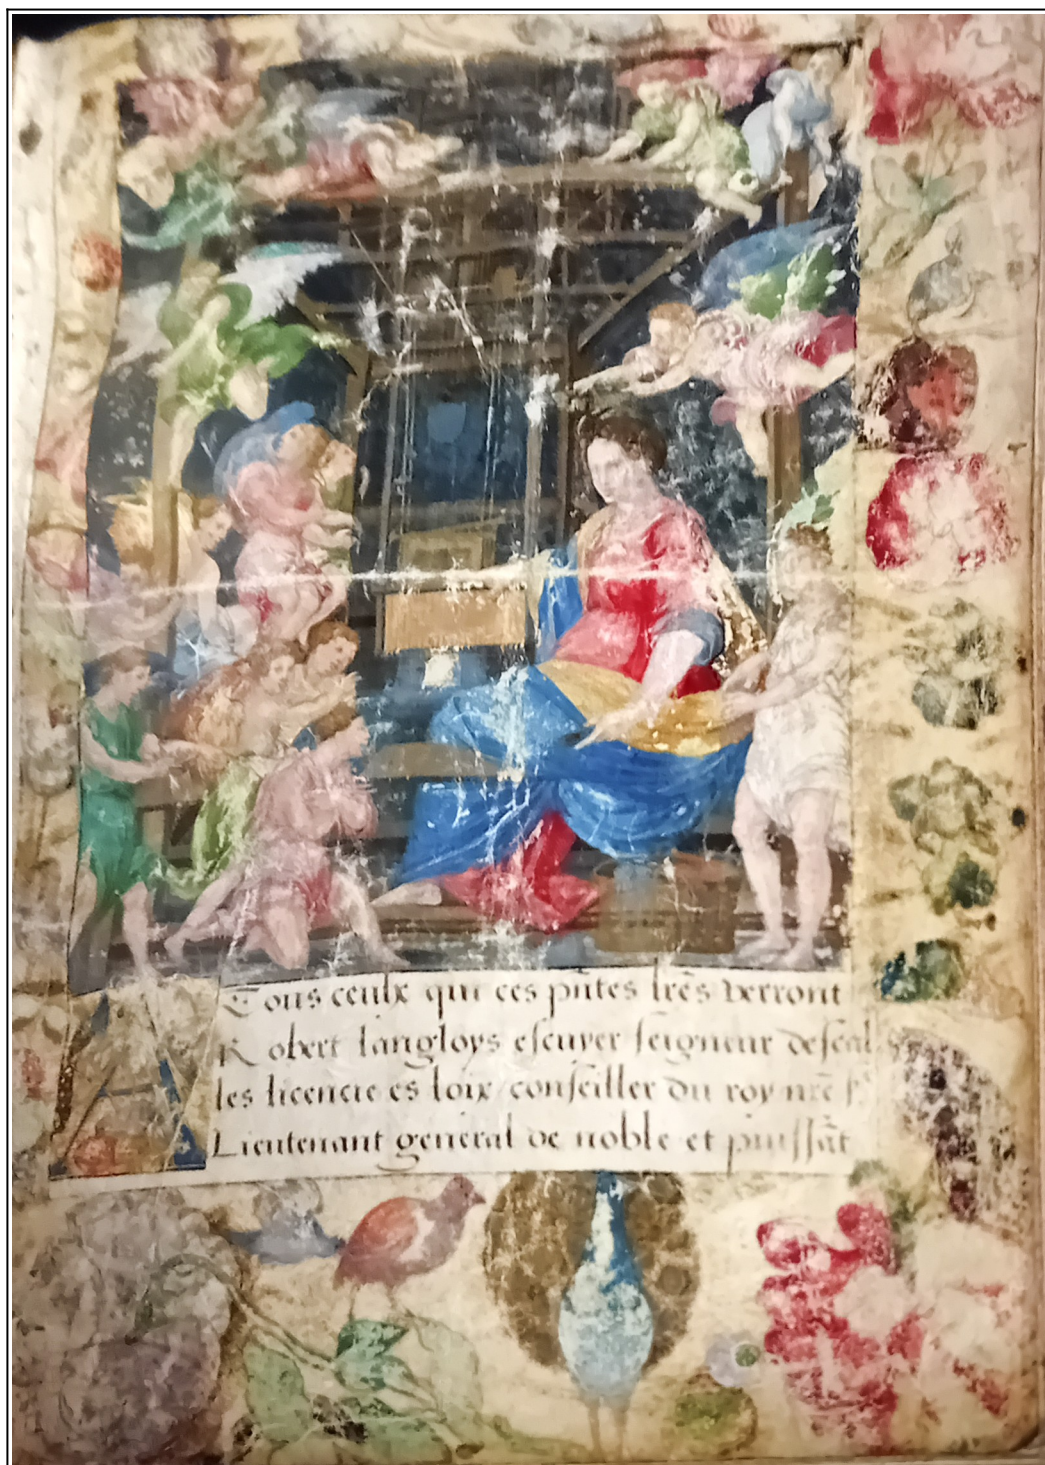 A Tous ceulx qui ces pñtes lrēs verront
Robert langloys escuyer seigneur descal
les licencie es loix / conseiller du roy nrē sʳ
Lieutenant general de noble et puissāt